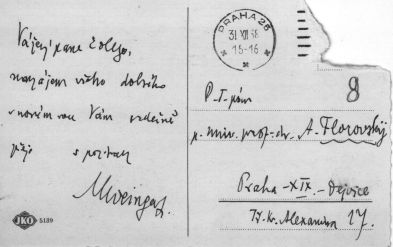 Vážený pane kollego,
mnoho zdaru a všeho dobrého
v novém roce Vám srdečně
přeje s poctou
MWeingart.
JKO 5139
PRAHA 25
31 XII 38
15-16
P. T. pán
p. univ. prof. dr. A. Florovskij
Praha - XIX. - Dejvice
Tř. kr. Alexandra 17.
8